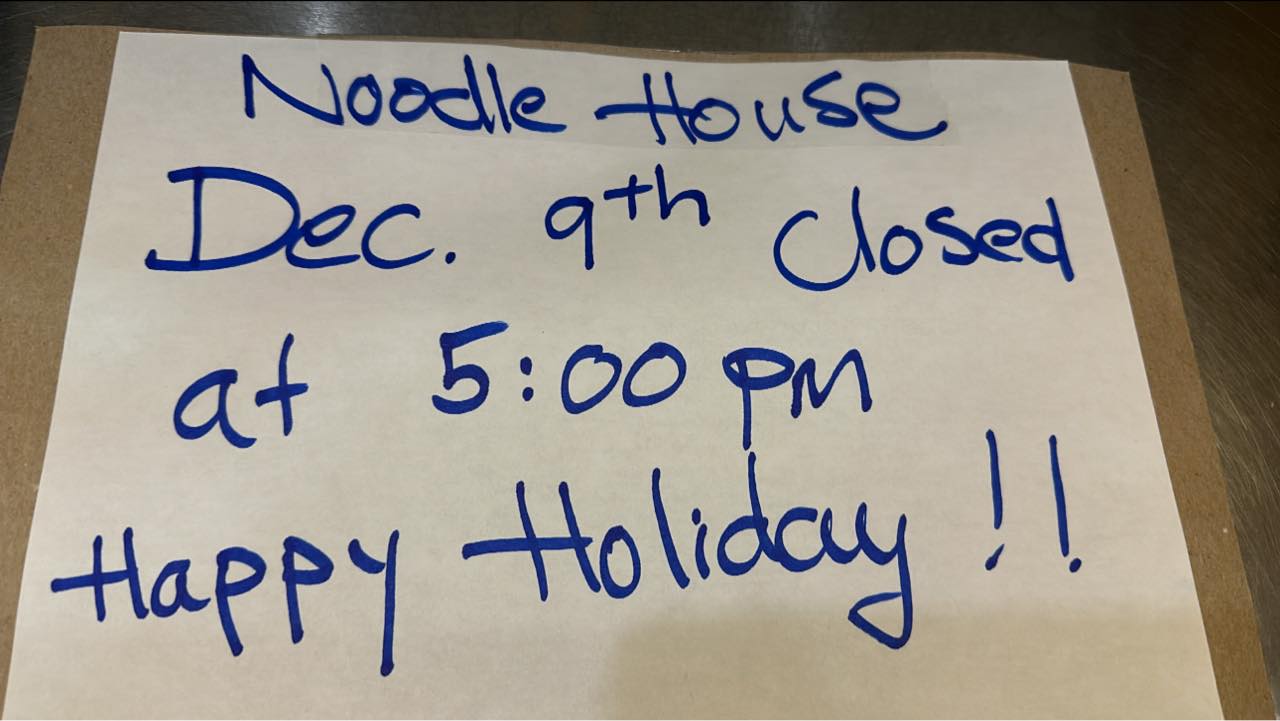 Noodle House
Dec. 9th Closed
at 5:00 PM
Happy Holiday !!